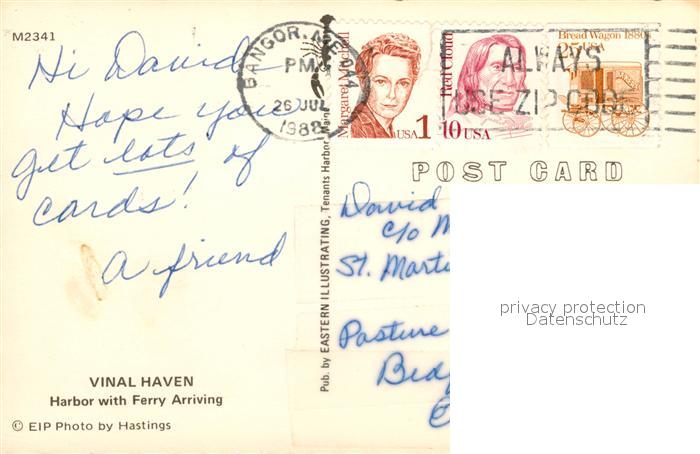 M2341
Hi David
Hope you
get lots of
cards!
A friend
VINAL HAVEN
Harbor with Ferry Arriving
© EIP Photo by Hastings
Pub. by EASTERN ILLUSTRATING, Tenants Harbor, Maine
BANGOR, ME 044
PM
26 JUL
1988
Margaret Mitchell
USA 1
Red Cloud
10 USA
Bread Wagon 1880s
25 USA
ALWAYS
USE ZIP CODE
POST CARD
David
c/o M
St. Marti
Pasture
Bedf
privacy protection
Datenschutz